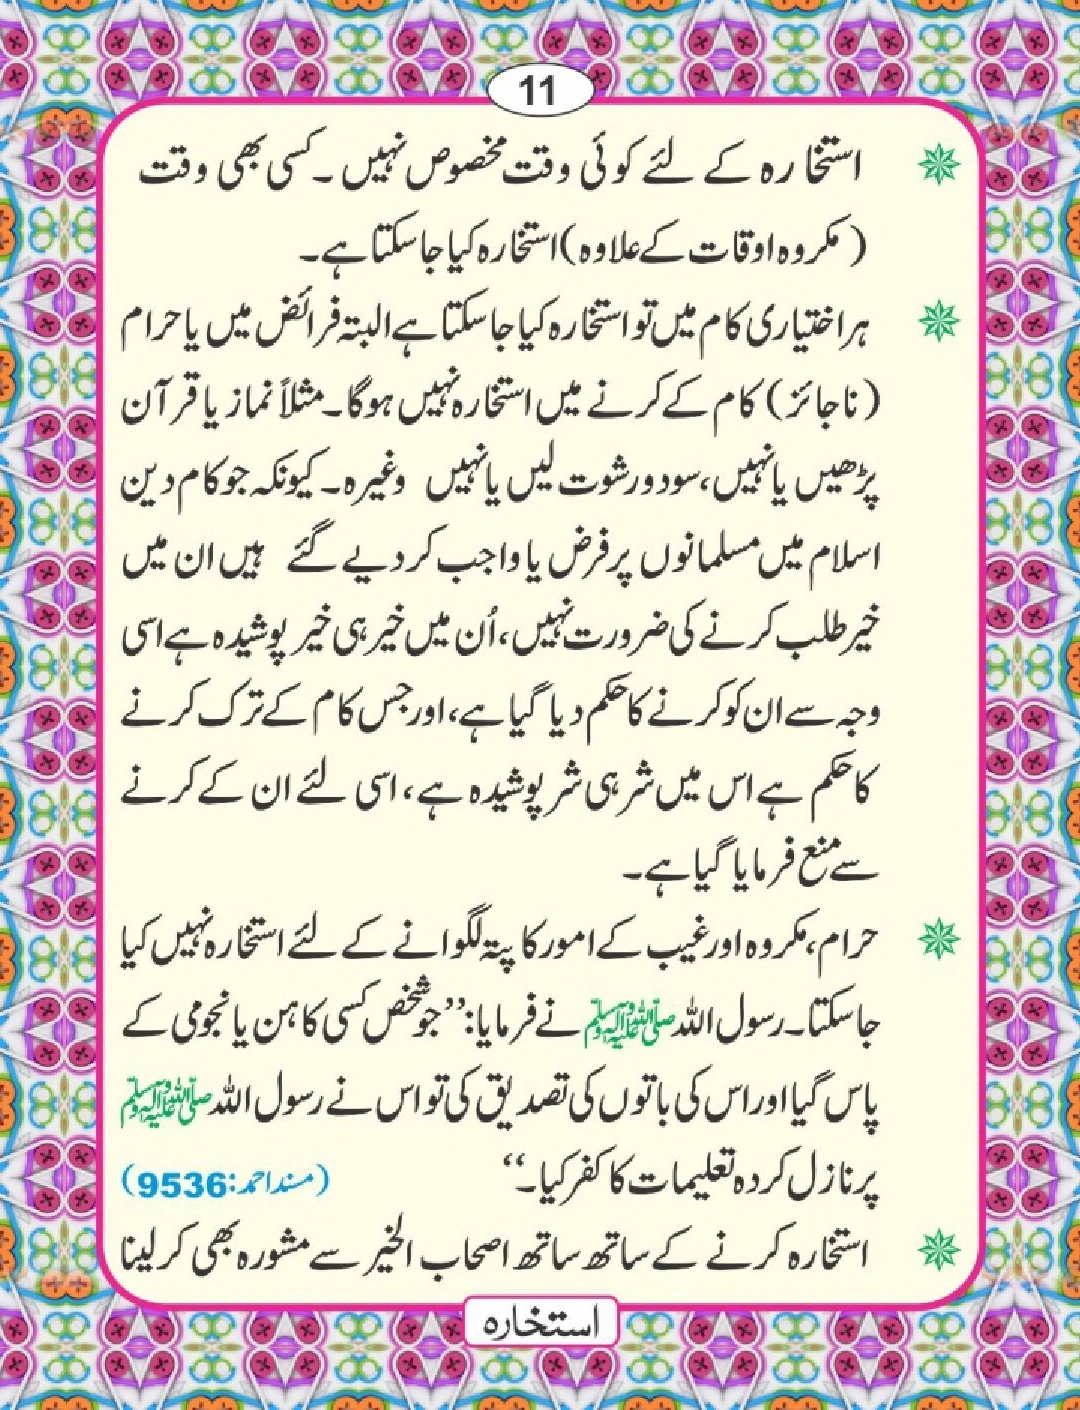 11
استخارہ کے لئے کوئی وقت مخصوص نہیں ۔ کسی بھی وقت
(مکروہ اوقات کے علاوہ) استخارہ کیا جا سکتا ہے۔
ہر اختیاری کام میں تو استخارہ کیا جا سکتا ہے البتہ فرائض میں یا حرام
(ناجائز) کام کے کرنے میں استخارہ نہیں ہوگا۔ مثلاً نماز یا قرآن
پڑھیں یا نہیں، سود و رشوت لیں یا نہیں وغیرہ۔ کیونکہ جو کام دین
اسلام میں مسلمانوں پر فرض یا واجب کر دیے گئے ہیں ان میں
خیر طلب کرنے کی ضرورت نہیں، اُن میں خیر ہی خیر پوشیدہ ہے اسی
وجہ سے ان کو کرنے کا حکم دیا گیا ہے، اور جس کام کے ترک کرنے
کا حکم ہے اس میں شر ہی شر پوشیدہ ہے، اسی لئے ان کے کرنے
سے منع فرمایا گیا ہے۔
حرام، مکروہ اور غیب کے امور کا پتہ لگوانے کے لئے استخارہ نہیں کیا
جا سکتا۔ رسول اللہ ﷺ نے فرمایا: ’’جو شخص کسی کاہن یا نجومی کے
پاس گیا اور اس کی باتوں کی تصدیق کی تو اس نے رسول اللہ ﷺ
پر نازل کردہ تعلیمات کا کفر کیا۔‘‘ (مسند احمد: 9536)
استخارہ کرنے کے ساتھ ساتھ اصحاب الخیر سے مشورہ بھی کر لینا
استخارہ